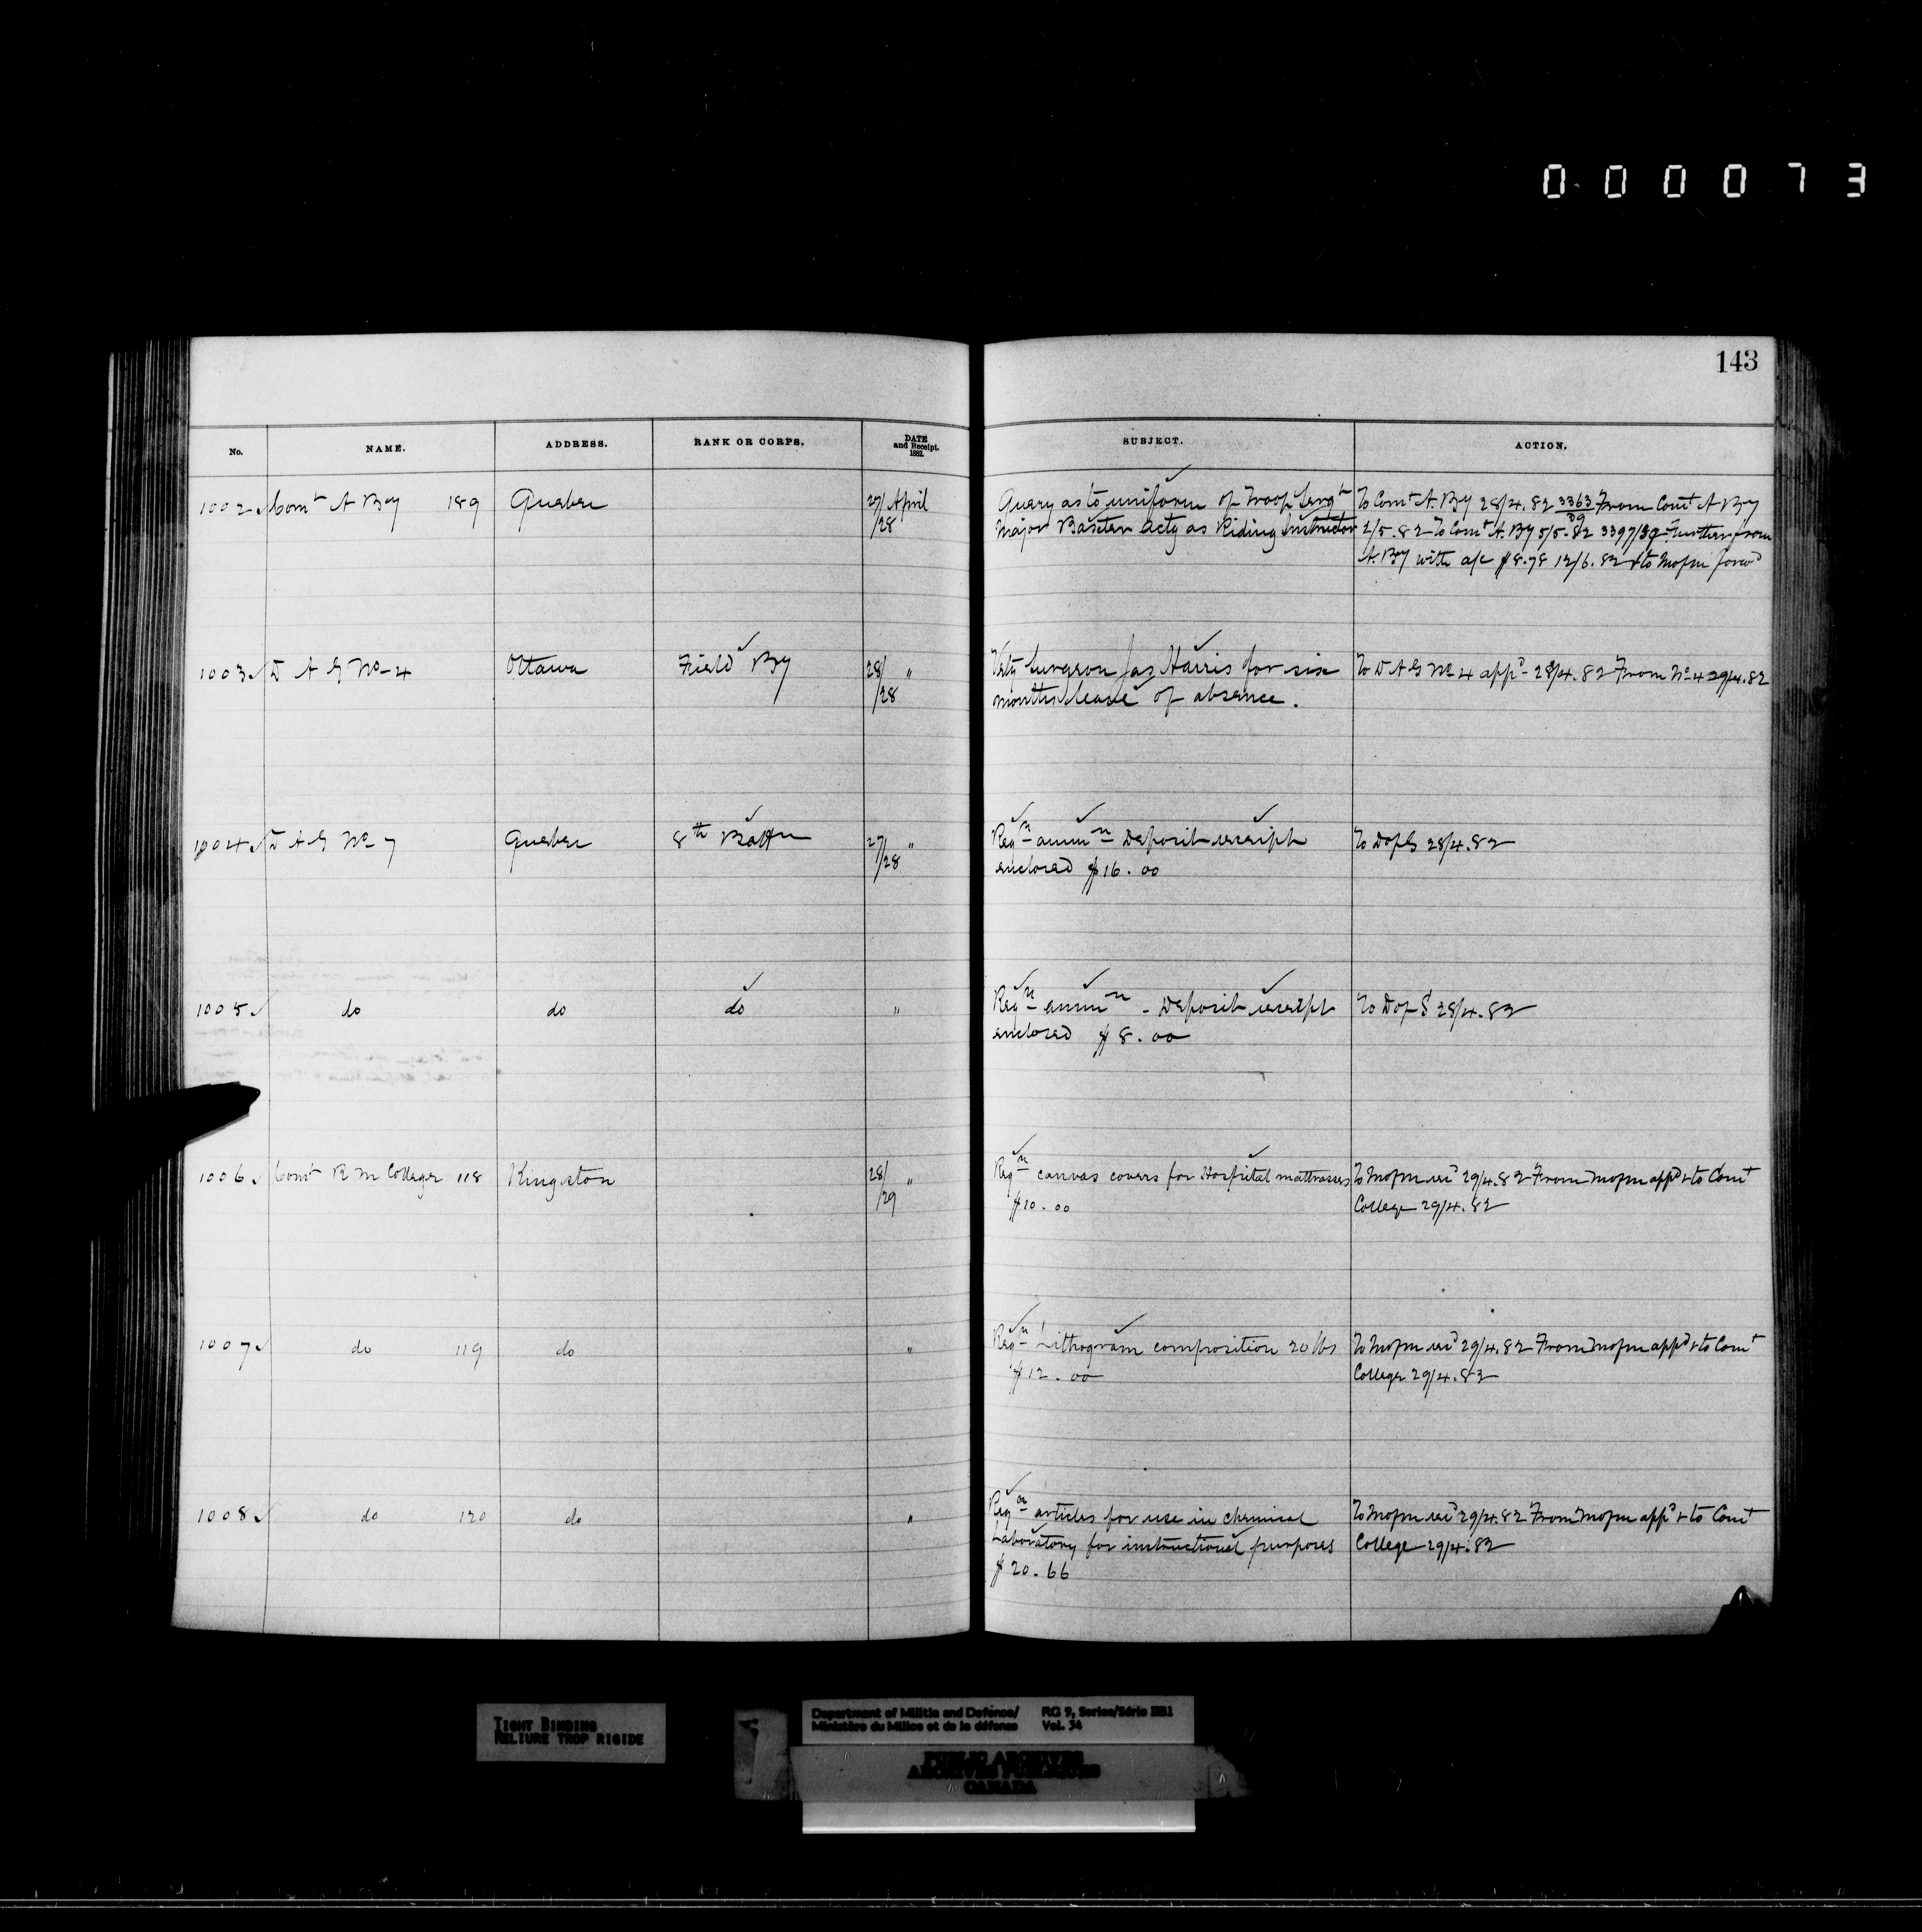 000073
143
No. NAME. ADDRESS. RANK OR CORPS. DATE and Receipt. 1882. SUBJECT. ACTION.
1002 Comt A By 189 Quebec 27/28 April Query as to uniform of Troop Sergt To Comt A. By 28/4.82 3363/39 From Comt A By
Major Baxter actg as Riding Instructor 2/5.82 To Comt A. By 5/5.82 3397/39 Further from
A. By with a/c $8.78 12/6.82 & to Mofm forwd
1003 D A G No 4 Ottawa Field By 28/28 " Vety Surgeon Jas Harris for six To D A G No 4 appd 28/4.82 From No 4 29/4.82
months leave of absence.
1004 D A G No 7 Quebec 8th Battn 27/28 " Reqn ammn Deposit receipt To DofS 28/4.82
enclosed $16.00
1005 do do do " Reqn ammn - Deposit receipt To DofS 28/4.82
enclosed $8.00
1006 Comt R M College 118 Kingston 28/29 " Reqn canvas covers for Hospital mattrasses To Mofm recd 29/4.82 From Mofm appd & to Comt
$10.00 College 29/4.82
1007 do 119 do " Reqn Lithogram composition 20 lbs To Mofm recd 29/4.82 From Mofm appd & to Comt
$12.00 College 29/4.82
1008 do 120 do " Reqn articles for use in chemical To Mofm recd 29/4.82 From Mofm appd & to Comt
Laboratory for instructional purposes College 29/4.82
$20.66
TIGHT BINDING
RELIURE TROP RIGIDE
Department of Militia and Defence/ RG 9, Series/Série IIB1
Ministère du Milice et de la défense Vol. 34
PUBLIC ARCHIVES
ARCHIVES PUBLIQUES
CANADA